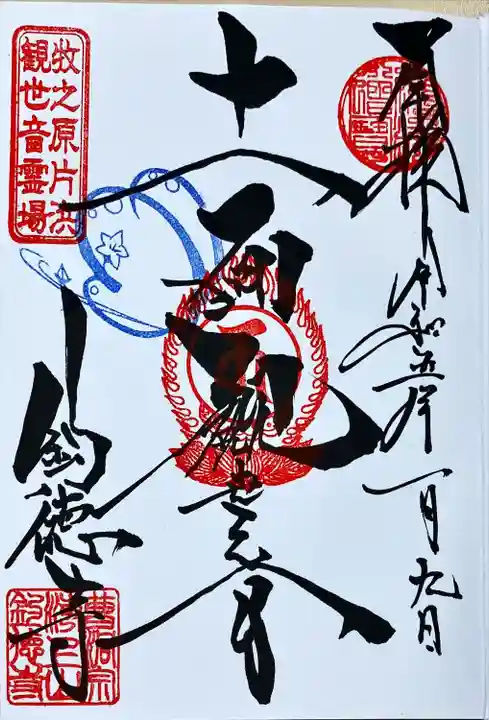 奉拝 令和五年一月九日
十一面観世音
釣徳寺
牧之原片浜
観世音霊場
曹洞宗
釣徳寺